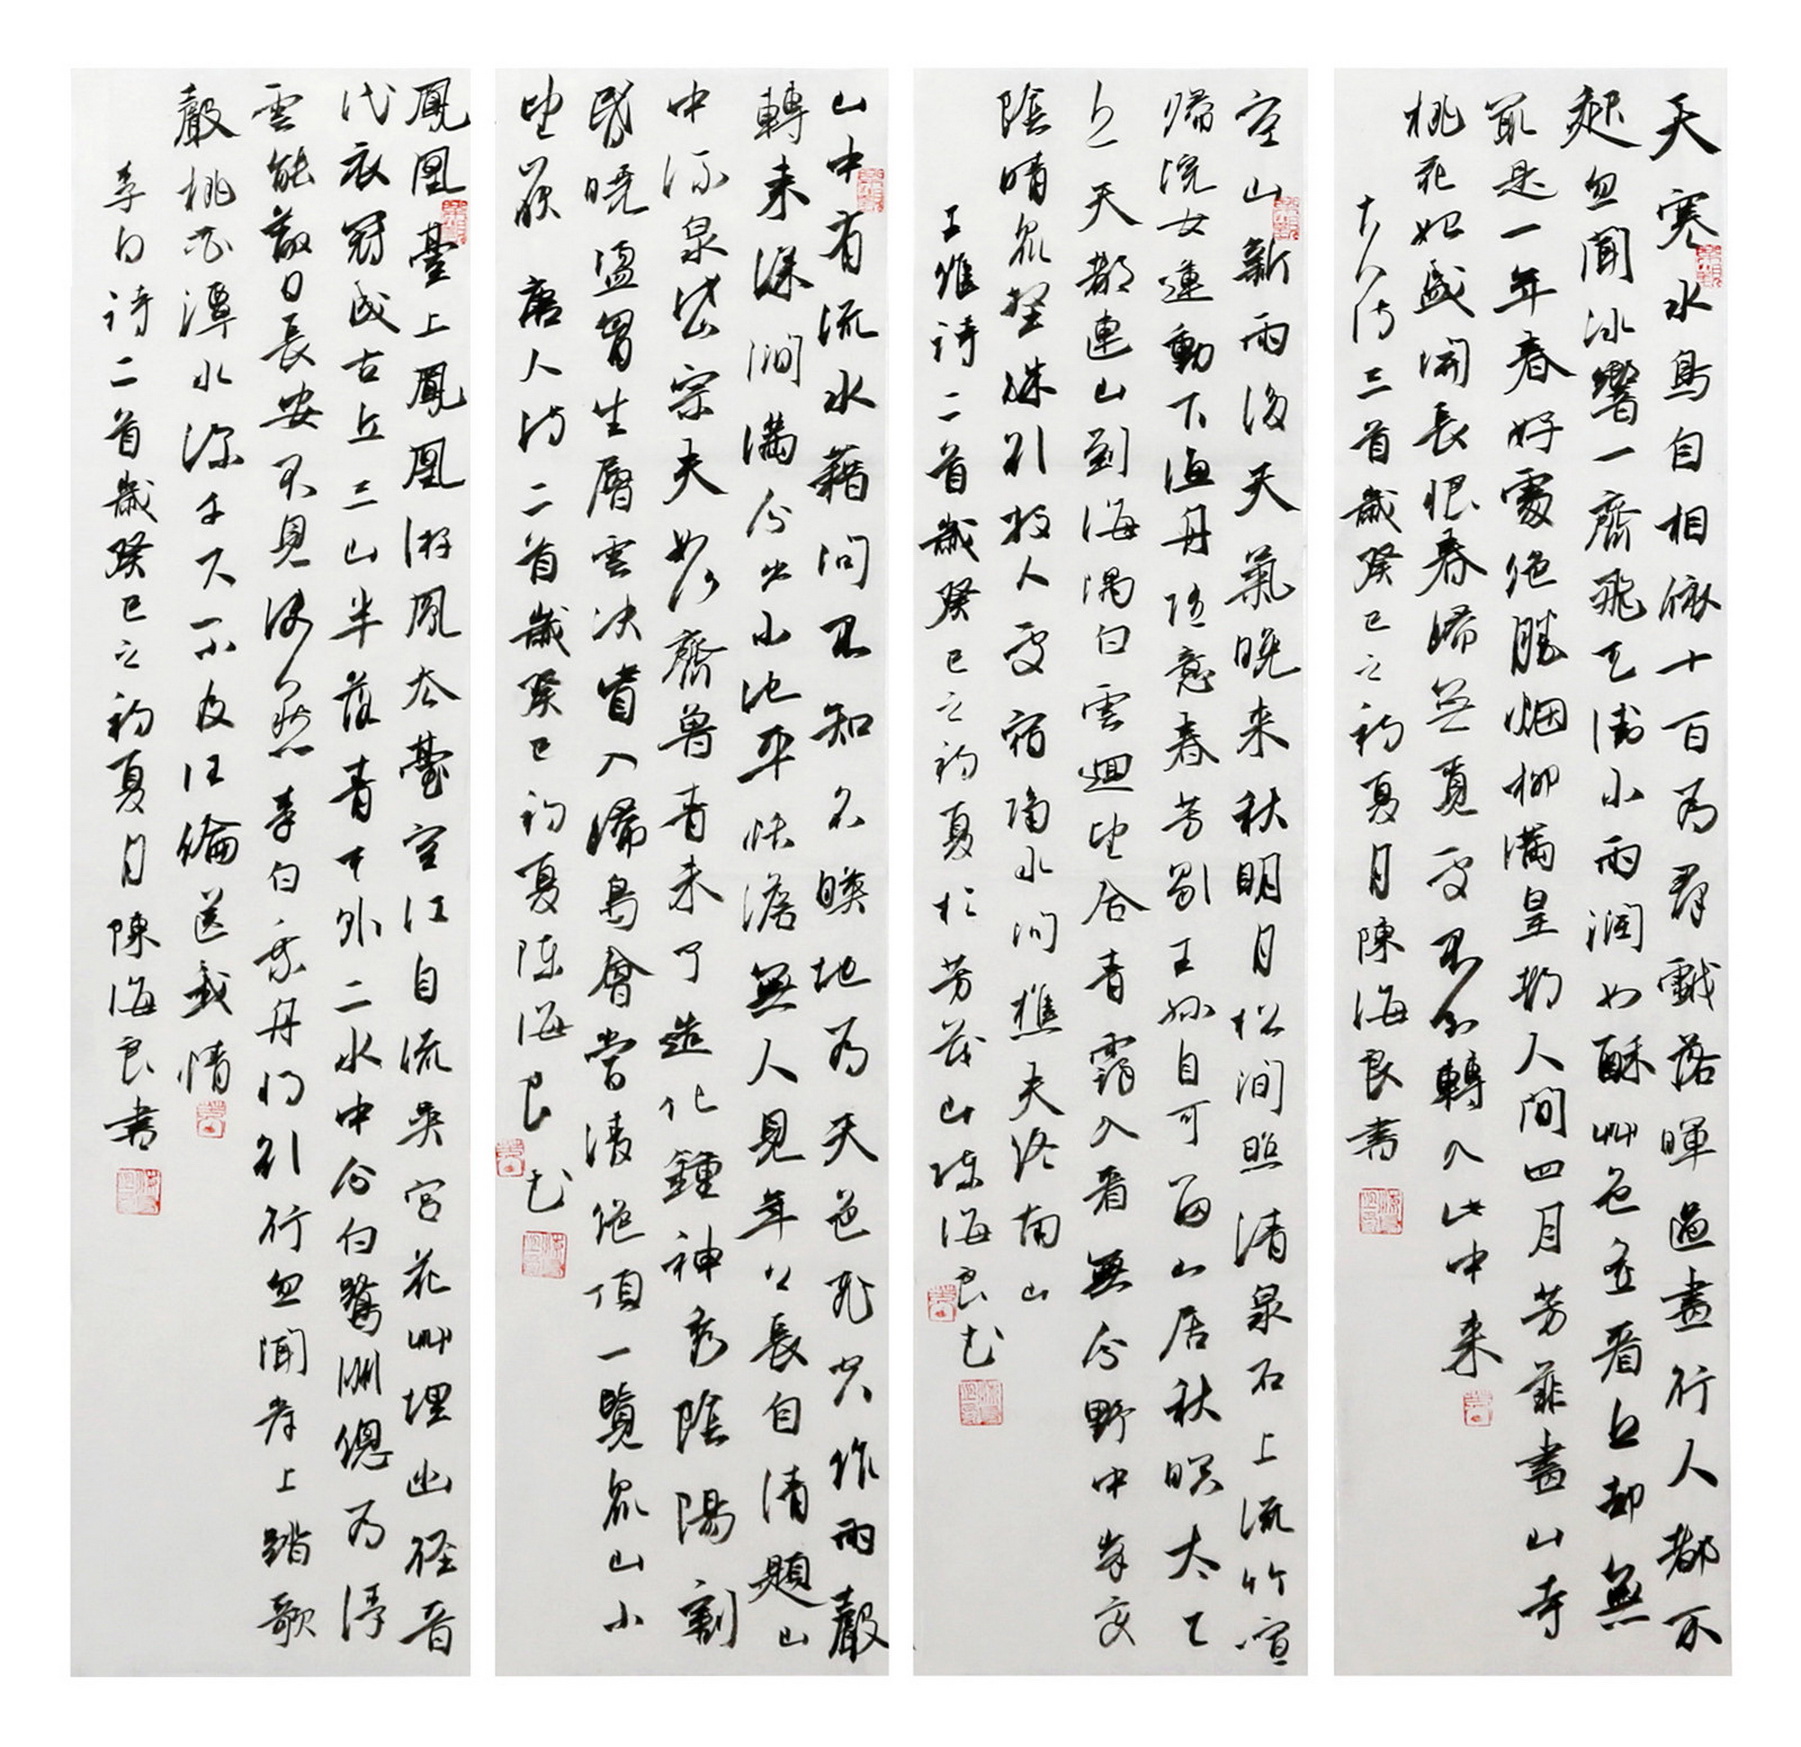 天寒水鳥自相依十百为群戲落暉過盡行人都不
起忽聞冰響一齊飛天街小雨潤如酥艸色遥看近却無
最是一年春好處绝勝烟柳满皇都人間四月芳菲盡山寺
桃花始盛開長恨春歸無覓處不知轉入此中来
古人诗三首歲癸巳之初夏月陳海良書
空山新雨後天氣晚来秋明月松间照清泉石上流竹喧
歸浣女蓮動下漁舟随意春芳歇王孫自可留山居秋暝太乙
近天都連山到海隅白雲迴望合青靄入看無分野中峰变
陰晴眾壑殊欲投人處宿隔水问樵夫终南山
王維詩二首歲癸巳之初夏於芳茂山陳海良书
山中有流水藉问不知名映地为天色飛空作雨聲
轉来深澗满分出小池平恬澹無人見年々長自清題山
中流泉岱宗夫如何齊魯青未了造化鍾神秀陰陽割
昏曉盪胸生層雲决眥入歸鳥會當凌绝頂一覽眾山小
望嶽 唐人诗二首歲癸巳初夏陳海良书
鳳凰臺上鳳凰游鳳去臺空江自流吳宫花艸埋幽徑晋
代衣冠成古丘三山半落青天外二水中分白鷺洲總为浮
雲能蔽日長安不見使人愁李白乘舟将欲行忽聞岸上踏歌
聲桃花潭水深千尺不及汪倫送我情
李白诗二首歲癸巳之初夏月陳海良書